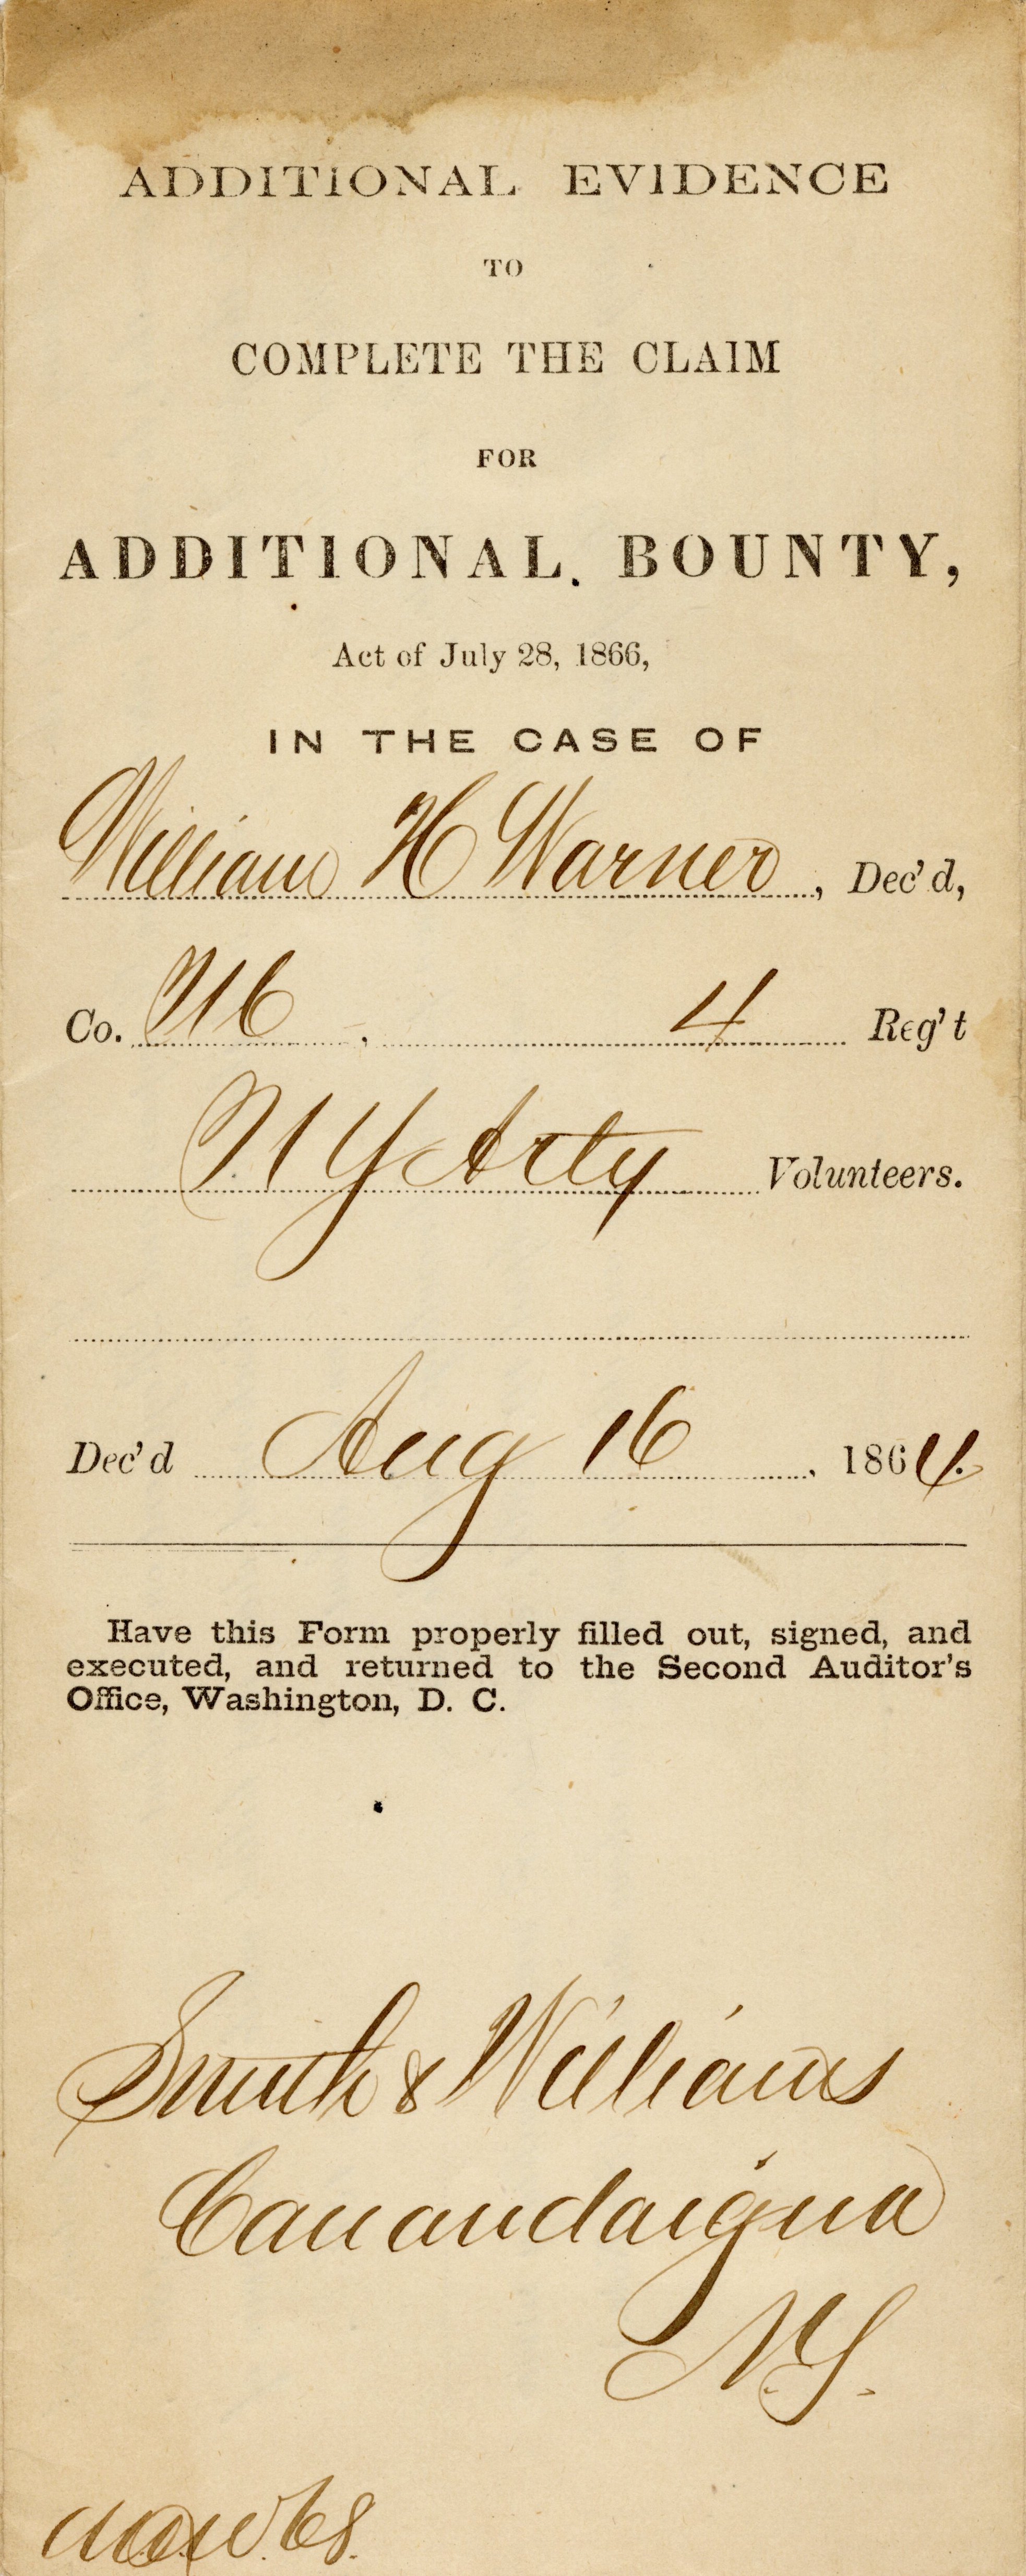 ADDITIONAL EVIDENCE
TO
COMPLETE THE CLAIM
FOR
ADDITIONAL BOUNTY,
Act of July 28, 1866,
IN THE CASE OF
William H Warner, Dec'd,
Co. 4 Reg't
N Y Arty Volunteers.
Dec'd Aug 16, 1864.
Have this Form properly filled out, signed, and
executed, and returned to the Second Auditor's
Office, Washington, D. C.
Smith & Williams
Canandaigua
N.Y.